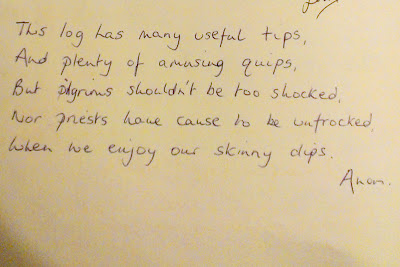 This log has many useful tips,
And plenty of amusing quips,
But pilgrims shouldn't be too shocked,
Nor priests have cause to be unfrocked,
When we enjoy our skinny dips.
Anon.